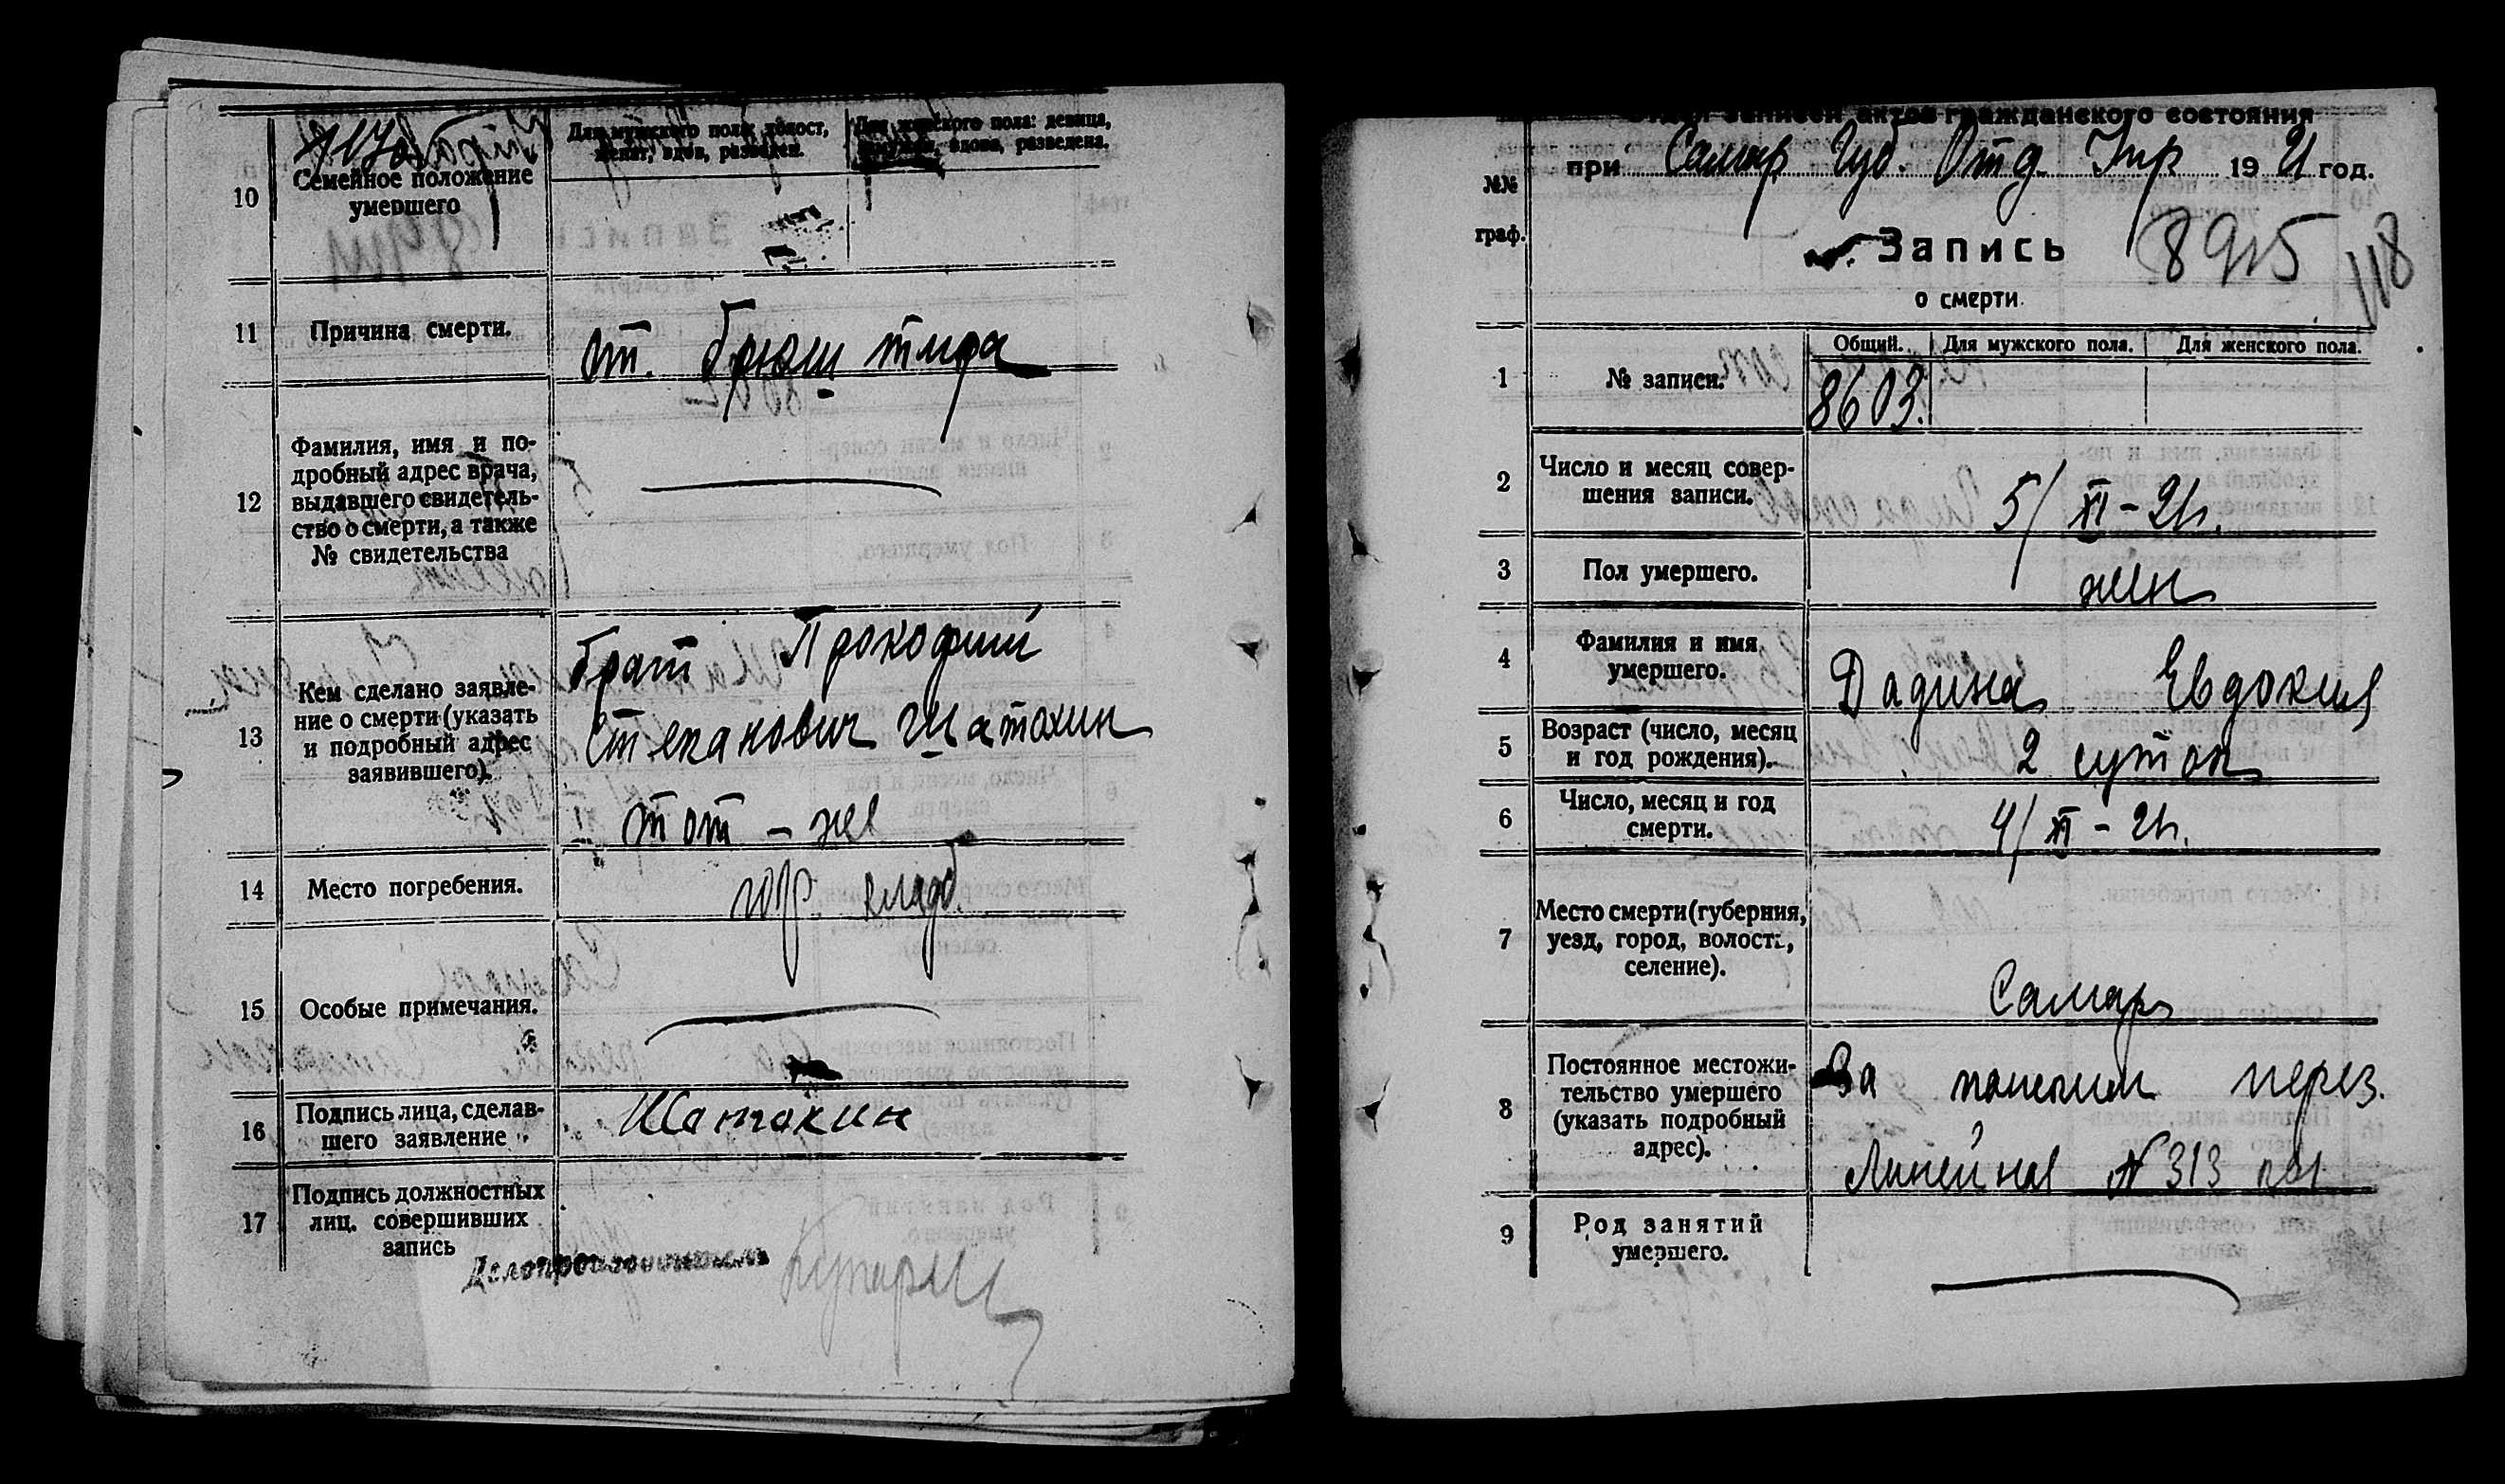 10
Семейное положение
умершего
Для мужского пола: холост,
женат, вдов, разведен.
Для женского пола: девица,
замужняя, вдова, разведена.
11
Причина смерти.
от. брюш тифа
12
Фамилия, имя и по-
дробный адрес врача,
выдавшего свидетель-
ство о смерти, а также
№ свидетельства
13
Кем сделано заявле-
ние о смерти (указать
и подробный адрес
заявившего).
брат Прокофий
Степанович Шатохин
тот - же
14
Место погребения.
гор. кладб.
15
Особые примечания.
16
Подпись лица, сделав-
шего заявление
Шатохин
17
Подпись должностных
лиц. совершивших
запись
Делопроизводитель
Отдел записей актов гражданского состояния
при Самар Губ. Отд. Упр 1921 год.
№№
граф.
Запись 8915
118
о смерти
Общий. Для мужского пола. Для женского пола.
1
№ записи.
8603.
2
Число и месяц совер-
шения записи.
5/XI-21г.
3
Пол умершего.
жен
4
Фамилия и имя
умершего.
Дадина Евдокия
5
Возраст (число, месяц
и год рождения).
2 суток
6
Число, месяц и год
смерти.
4/XI-21г.
7
Место смерти (губерния,
уезд, город, волость,
селение).
Самар
8
Постоянное местожи-
тельство умершего
(указать подробный
адрес).
За полским перез.
Линейная N 313
9
Род занятий
умершего.